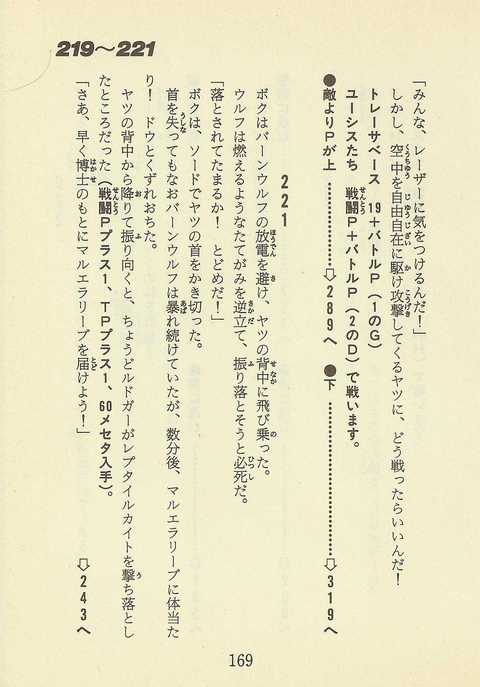 219～221
「みんな、レーザーに気をつけるんだ！」
しかし、空中を自由自在に駆け攻撃してくるヤツに、どう戦ったらいいんだ！
トレーサベース　19＋バトルP（1のG）
ユーシスたち　戦闘P＋バトルP（2のD）で戦います。
●敵よりPが上 ……………⇨289へ　●下 ……………………⇨319へ
221
ボクはバーンウルフの放電を避け、ヤツの背中に飛び乗った。
ウルフは燃えるようなたてがみを逆立て、振り落とそうと必死だ。
「落とされてたまるか！　とどめだ！」
ボクは、ソードでヤツの首をかき切った。
首を失ってもなおバーンウルフは暴れ続けていたが、数分後、マルエラリーブに体当た
り！　ドウとくずれおちた。
ヤツの背中から降りて振り向くと、ちょうどルドガーがレプタイルカイトを撃ち落とし
たところだった（戦闘Pプラス1、TPプラス1、60メセタ入手）。
「さあ、早く博士のもとにマルエラリーブを届けよう！」　⇨243へ
169